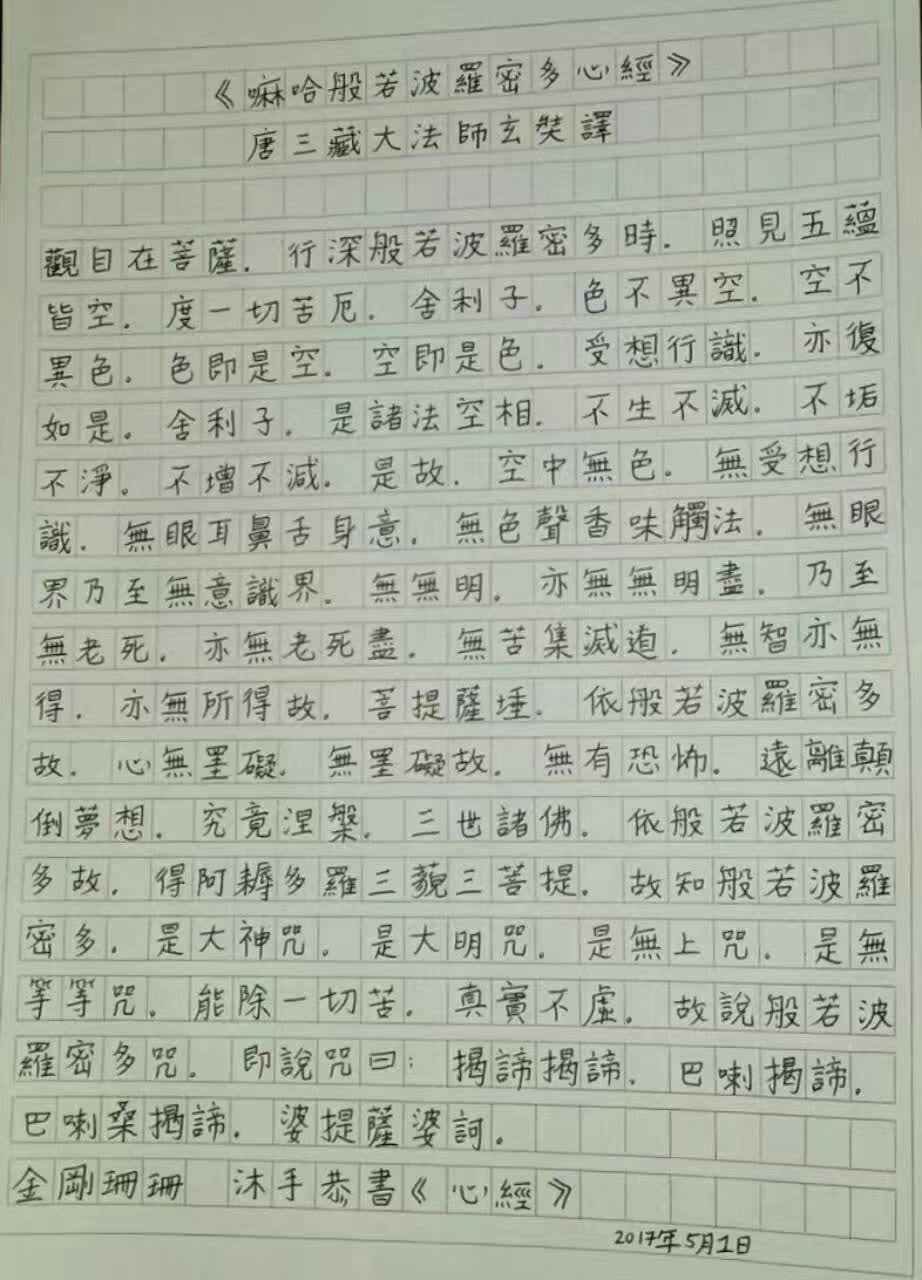 《嘛哈般若波羅密多心經》
唐三藏大法師玄奘譯
觀自在菩薩.行深般若波羅密多時.照見五蘊
皆空.度一切苦厄.舍利子.色不異空.空不
異色.色即是空.空即是色.受想行識.亦復
如是.舍利子.是諸法空相.不生不滅.不垢
不淨.不增不減.是故.空中無色.無受想行
識.無眼耳鼻舌身意.無色聲香味觸法.無眼
界乃至無意識界.無無明.亦無無明盡.乃至
無老死.亦無老死盡.無苦集滅道.無智亦無
得.亦無所得故.菩提薩埵.依般若波羅密多
故.心無罣礙.無罣礙故.無有恐怖.遠離顛
倒夢想.究竟涅槃.三世諸佛.依般若波羅密
多故.得阿耨多羅三藐三菩提.故知般若波羅
密多.是大神咒.是大明咒.是無上咒.是無
等等咒.能除一切苦.真實不虛.故說般若波
羅密多咒.即說咒曰:揭諦揭諦.巴喇揭諦.
巴喇桑揭諦.婆提薩婆訶.
金剛珊珊 沐手恭書《心經》
2017年5月1日